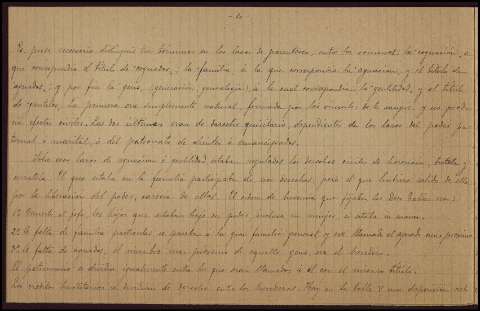 -20-
Es pues necesario distinguir tres términos en los lazos de parentesco, entre los romanos: la cognación, a
que correspondía el título de cognados; la familia, á la que correspondía la agnación, y el título de
agnados; y por fin la gens, (generación, genealogía) á la cual correspondía la gentilidad, y el título
de gentiles. La primera era simplemente natural, formada por los vínculos de la sangre y no producía
efectos civiles. Las dos últimas eran de derecho quiritario, dependientes de los lazos del poder pa-
ternal ó marital, ó del patronato de clientes ó emancipados.
Sobre esos lazos de agnación ó gentilidad estaban regulados los derechos civiles de herencia, tutela y
curatela. El que estaba en la familia participaba de esos derechos, pero el que hubiera salido de ella
por la liberación del poder, carecía de ellos. El orden de herencia que fijaban las Doce Tablas era:
1º Muerto el jefe, los hijos que estaban bajo su poder, incluso su mujer, si estaba in manu.
2º A falta de familia particular se pasaba á la gran familia general y era llamado el agnado más próximo
3º A falta de agnados, el miembro más próximo de aquella gens, era el heredero.
El patrimonio se dividía igualmente entre los que eran llamados á él con el mismo título.